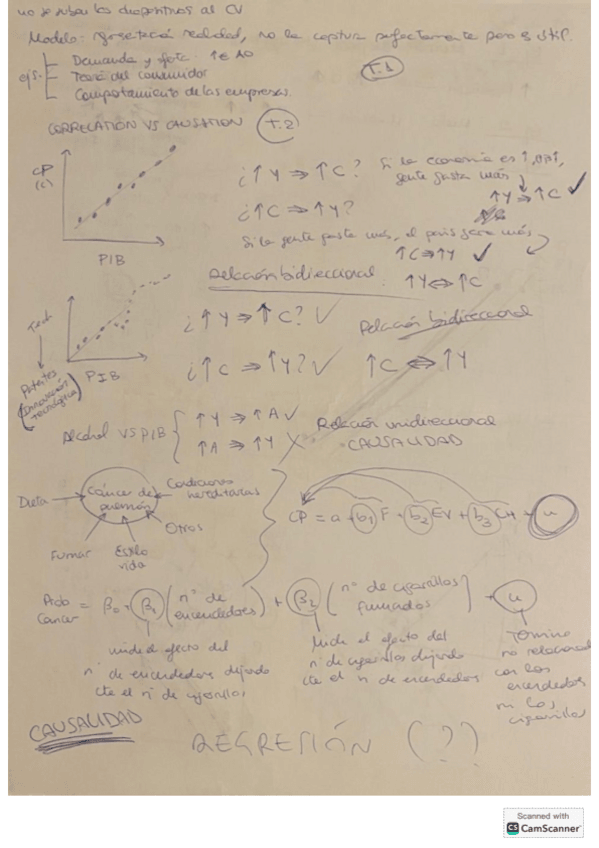 no se suben las diapositivas al CV
Modelo: representación realidad, no la captura perfectamente pero es útil.
ejs.
Demanda y oferta
Teoría del consumidor
Comportamiento de las empresas.
T.1
CORRELATION VS CAUSATION T.2
CP
(c)
PIB
¿↑Y ⇒ ↑C?
¿↑C ⇒ ↑Y?
Si la economía es ↑,
gente gasta más
↑Y ⇒ ↑C ✓
Si la gente gasta más, el país gana más
↑C ⇒ ↑Y ✓
Relación bidireccional
↑Y ⇔ ↑C
Tech
Patentes
(Innovación
tecnológica)
PIB
¿↑Y ⇒ ↑C? ✓
¿↑C ⇒ ↑Y? ✓
Relación bidireccional
↑C ⇔ ↑Y
Alcohol VS PIB
↑Y ⇒ ↑A ✓
↑A ⇒ ↑Y X
Relación unidireccional
CAUSALIDAD
Dieta
Cáncer de
pulmón
Condiciones
hereditarias
Fumar
Estilo
vida
Otros
CP = a + b1 F + b2 EV + b3 CH + u
Prob
Cancer = β0 + β1 (nº de
encendedores) + β2 (nº de cigarrillos
fumados) + u
mide el efecto del
nº de encendedores dejando
cte el nº de cigarrillos
Mide el efecto del
nº de cigarrillos dejando
cte el n de encendedores
Término
no relacionado
con los
encendedores
ni los
cigarrillos
CAUSALIDAD
REGRESIÓN (??)
Scanned with
CS CamScanner